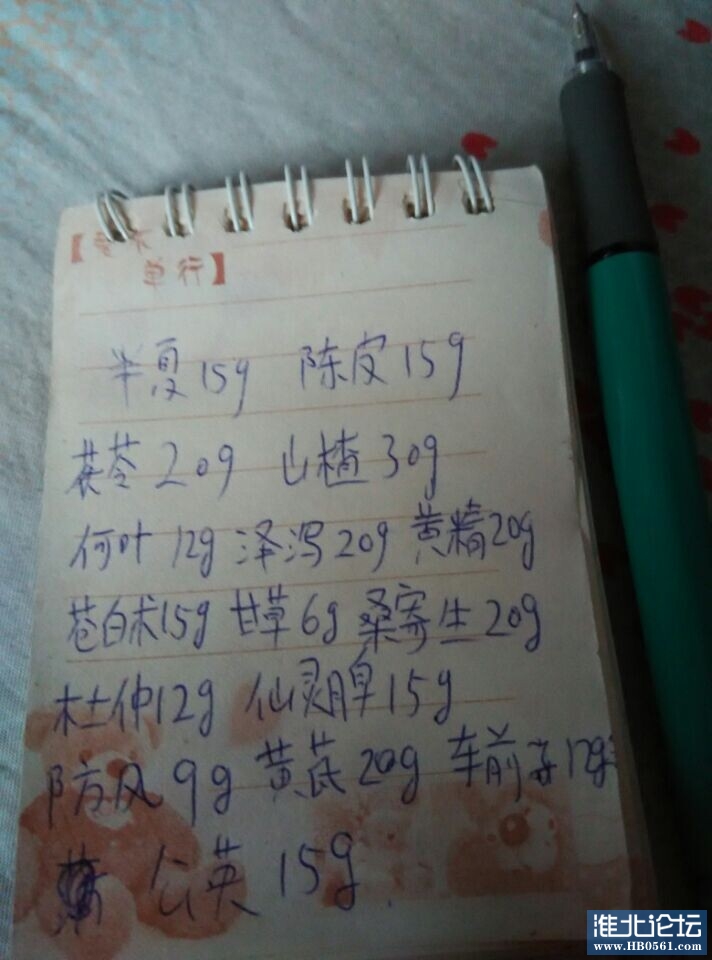 【 
单行】
半夏15g 陈皮15g
茯苓20g 山楂30g
何叶12g 泽泻20g 黄精20g
苍白术15g 甘草6g 桑寄生20g
杜仲12g 仙灵脾15g
防风9g 黄芪20g 车前子12g
公英15g
淮北论坛
www.HB0561.com